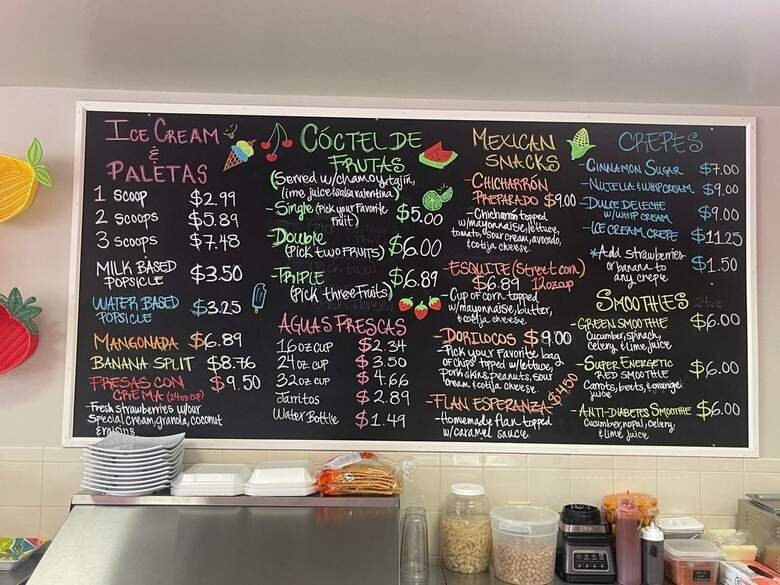 ICE CREAM
&
PALETAS
1 SCOOP $2.99
2 SCOOPS $5.89
3 SCOOPS $7.48
MILK BASED
POPSICLE $3.50
WATER BASED
POPSICLE $3.25
MANGONADA $6.89
BANANA SPLIT $8.76
FRESAS CON
CREMA (24oz CUP) $9.50
-Fresh strawberries w/our
Special cream, granola, coconut
& raisins
CÓCTEL DE
FRUTAS
(Served w/chamoy, tajin,
lime juice & salsa valentina)
-Single (Pick your favorite
Fruit) $5.00
-Double
(PICK TWO FRUITS) $6.00
-TRIPLE
(Pick three fruits) $6.89
AGUAS FRESCAS
16 oz CUP $2.34
24 oz CUP $3.50
32 oz CUP $4.66
Jarritos $2.89
Water Bottle $1.49
MEXICAN
SNACKS
-CHICHARRÓN
PREPARADO $9.00
-Chicharron topped
w/mayonnaise, lettuce,
tomato, sour cream, avocado,
& cotija cheese
-ESQUITE (Street corn)
$6.89 12oz cup
-Cup of corn topped
w/mayonnaise, butter,
& cotija cheese
-DORILOCOS $9.00
-Pick your favorite bag
of chips topped w/lettuce,
pork skins, peanuts, sour
cream & cotija cheese
-FLAN ESPERANZA $4.50
-Homemade flan topped
w/caramel sauce
CREPES
-CINNAMON SUGAR $7.00
-NUTELLA & WHIP CREAM $9.00
-DULCE DE LECHE
w/ WHIP CREAM $9.00
-ICE CREAM CREPE $11.25
*Add strawberries
or banana to
any crepe $1.50
SMOOTHIES 24oz
-GREEN SMOOTHIE $6.00
Cucumber, spinach,
celery & lime juice
-SUPER ENERGETIC
RED SMOOTHIE $6.00
Carrots, beets, & orange
juice
-ANTI-DIABETES SMOOTHIE $6.00
Cucumber, nopal, celery,
& lime juice